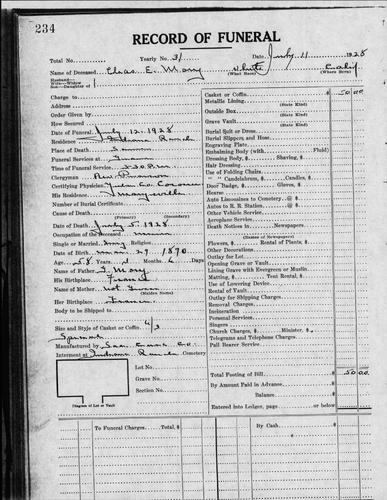 234
RECORD OF FUNERAL
Total No. Yearly No. 31 Date July 11 1928
Name of Deceased Chas E. Mory White Calif
Husband Wife—Widow Son—Daughter of (What Race) (Where Born)
Charge to
Address
Order Given by
How Secured
Date of Funeral July 12, 1928
Residence Indiana Ranch
Place of Death Same
Funeral Services at
Time of Funeral Service 2:30 P.M.
Clergyman Rev.
Certifying Physician Yuba Co. Coroner
His Residence Marysville
Number of Burial Certificate
Cause of Death
(Primary) (Secondary)
Date of Death July 5, 1928
Occupation of the Deceased miner
Single or Married Religion
Date of Birth mar 29, 1870
Age 58 Years Months 6 Days
Name of Father Mory
His Birthplace France
Name of Mother not Given
(Maiden Name)
Her Birthplace France
Body to be Shipped to
Size and Style of Casket or Coffin 6/3
Manufactured by Co.
Interment at Indiana Ranch Cemetery
Lot No.
Grave No.
Section No.
Diagram of Lot or Vault
Casket or Coffin 50 00
Metallic Lining
(State Kind)
Outside Box
(State Kind)
Grave Vault
(State Kind)
Burial Suit or Dress
Burial Slippers and Hose
Engraving Plate
Embalming Body (with Fluid)
Dressing Body, $ Shaving, $
Hair Dressing
Use of Folding Chairs
" " Candelabrum, $ Candles, $
Door Badge, $ Gloves, $
Hearse
Auto Limousines to Cemetery @ $
Autos to R. R. Station @ $
Other Vehicle Service
Aeroplane Service
Death Notices in Newspapers
(Names of Newspapers)
Flowers, $ Rental of Plants, $
Other Decorations
Outlay for Lot
Opening Grave or Vault
Lining Grave with Evergreen or Muslin
Matting, $ Tent Rental, $
Use of Lowering Device
Rental of Vault
Outlay for Shipping Charges
Removal Charges
Incineration
Personal Services
Singers
Church Charges, $ Minister, $
Telegrams and Telephone Charges
Pall Bearer Service
Total Footing of Bill 50 00
By Amount Paid in Advance
Balance
Entered into Ledger, page or below
To Funeral Charges Total $ By Cash $